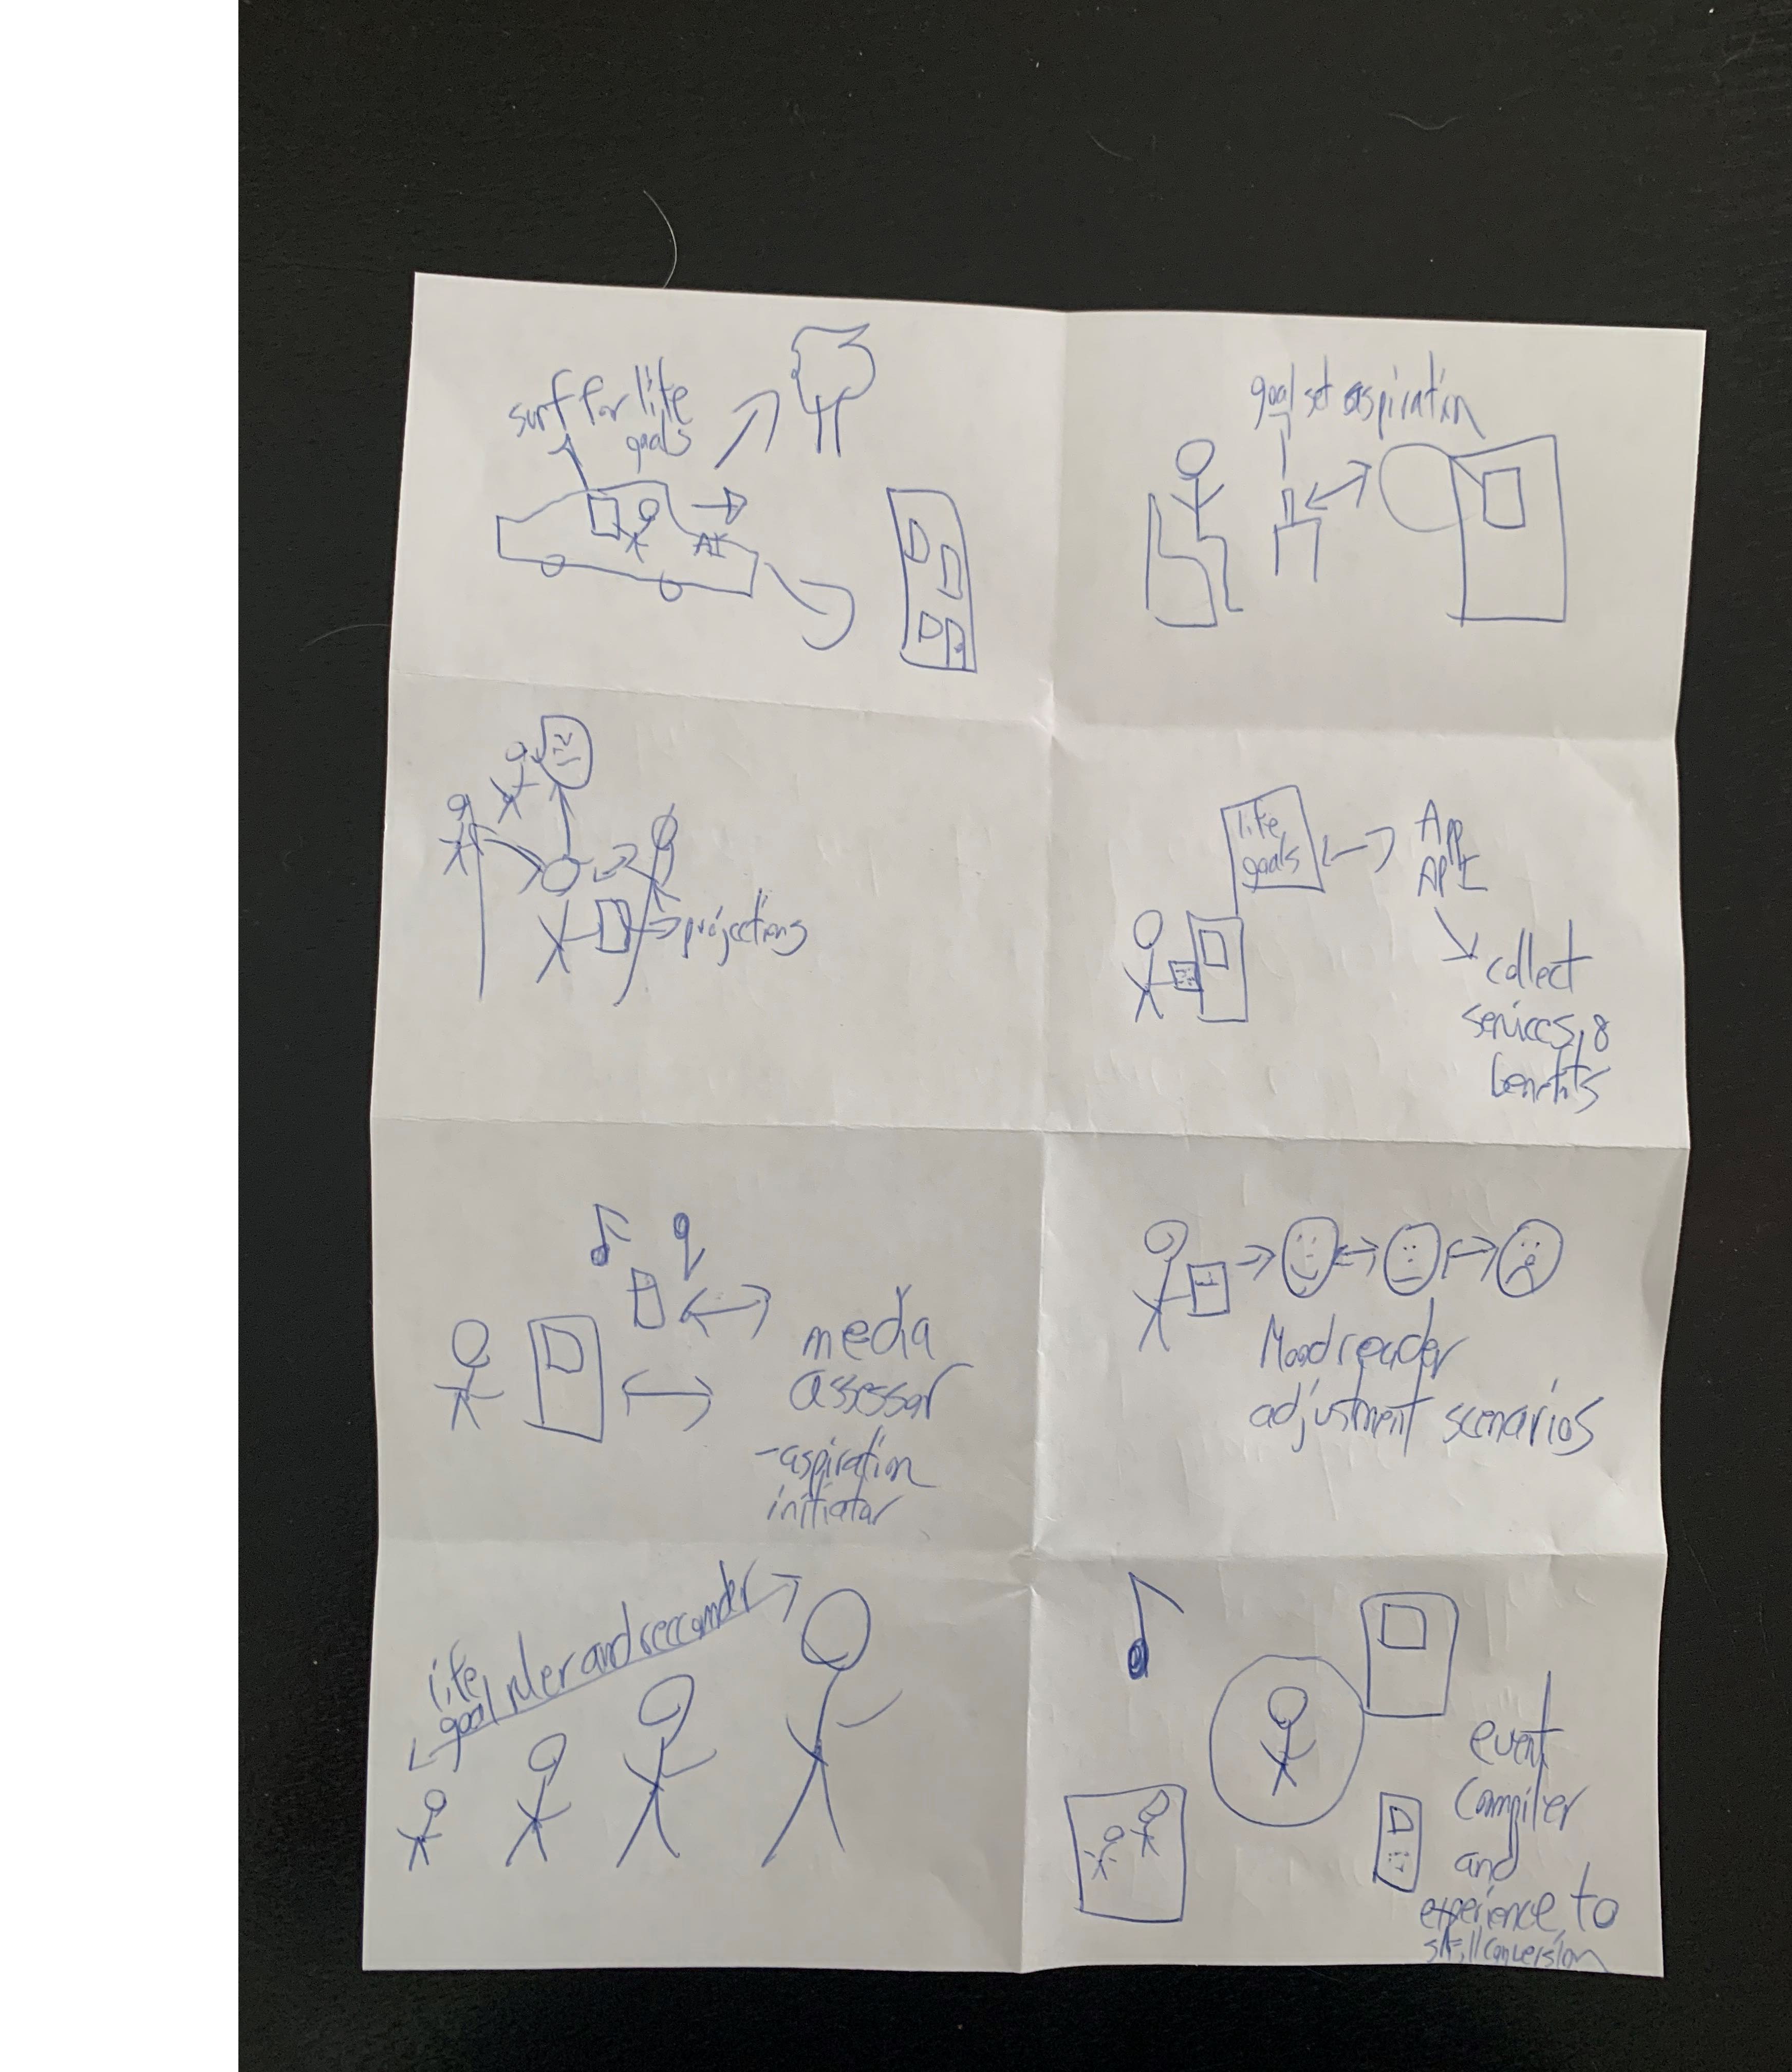 surf for life
goals
AI
goal set aspiration
projections
life
goals
App
API
collect
services, &
benefits
media
assessor
-aspiration
initiator
Mood reader
adjustment scenarios
life
goal ruler and reccomder
event
compiler
and
experience to
skill conversion